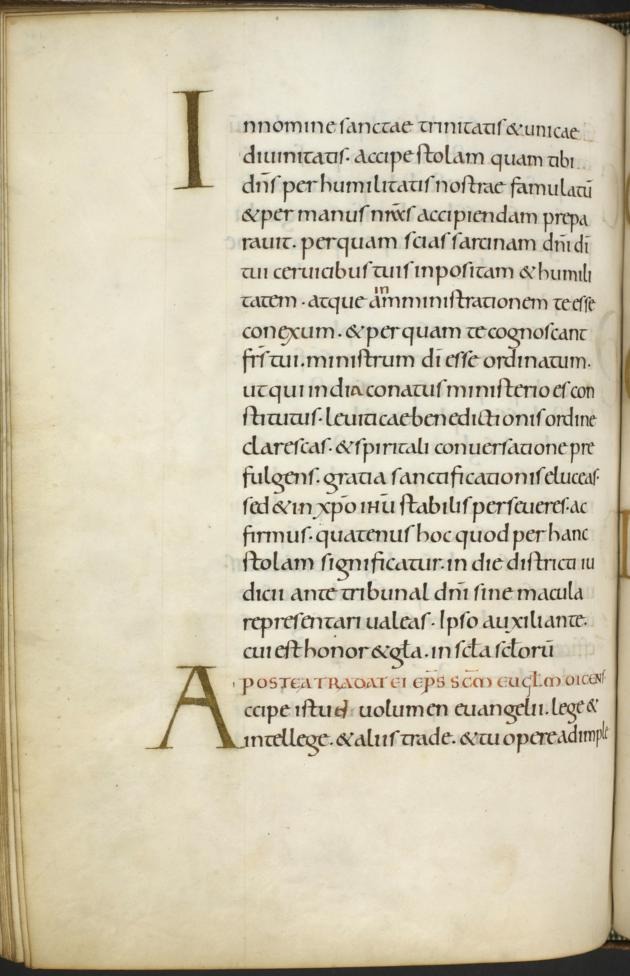 Innomine sanctae trinitatis & unicae
diuinitatis. accipe stolam quam tibi
dn̄s per humilitatis nostrae famulatū
& per manus nr̄as accipiendam prepa
rauit. per quam scias sarcinam dn̄i dī
tui ceruicibus tuis inpositam & humili
tatem. atque in amministrationem te esse
conexum. & per quam te cognoscant
fr̄s tui. ministrum dī esse ordinatum.
ut qui in diaconatus ministerio es con
stitutus. leuiticae benedictionis ordine
clarescas. & spiritali conuersatione pre
fulgens. gratia sanctificationis eluceas.
sed & in xp̄o ihū stabilis perseueres. ac
firmus. quatenus hoc quod per hanc
stolam significatur. in die districti iu
dicii ante tribunal dn̄i sine macula
representari ualeas. Ipso auxiliante.
cui est honor & gła. in scła scłorū
POSTEA TRADAT EI EP̄S SC̄M EUGL̄M DICENS
Accipe istud uolumen euangelii. lege &
intellege. & aliis trade. & tu opere adimple